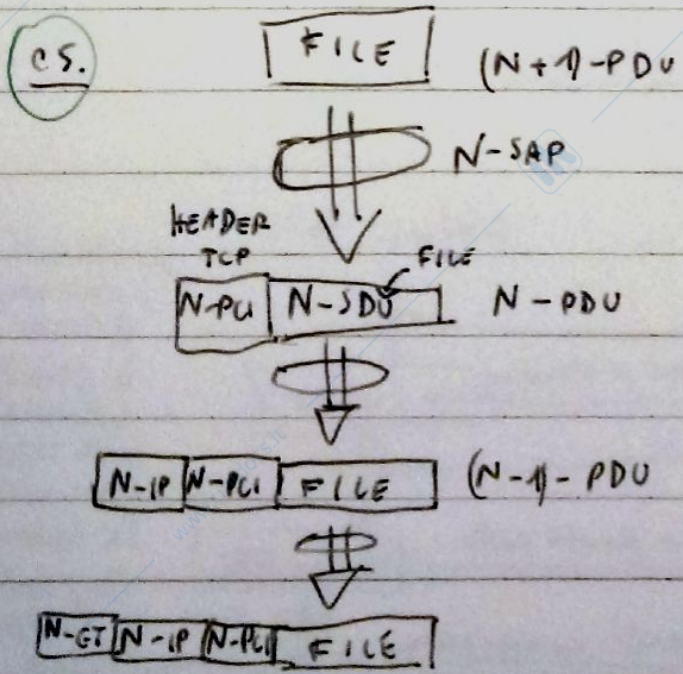 es.
FILE (N+1)-PDU
N-SAP
HEADER
TCP
FILE
N-PCI N-SDU N-PDU
N-IP N-PCI FILE (N-1)-PDU
N-ET N-IP N-PCI FILE